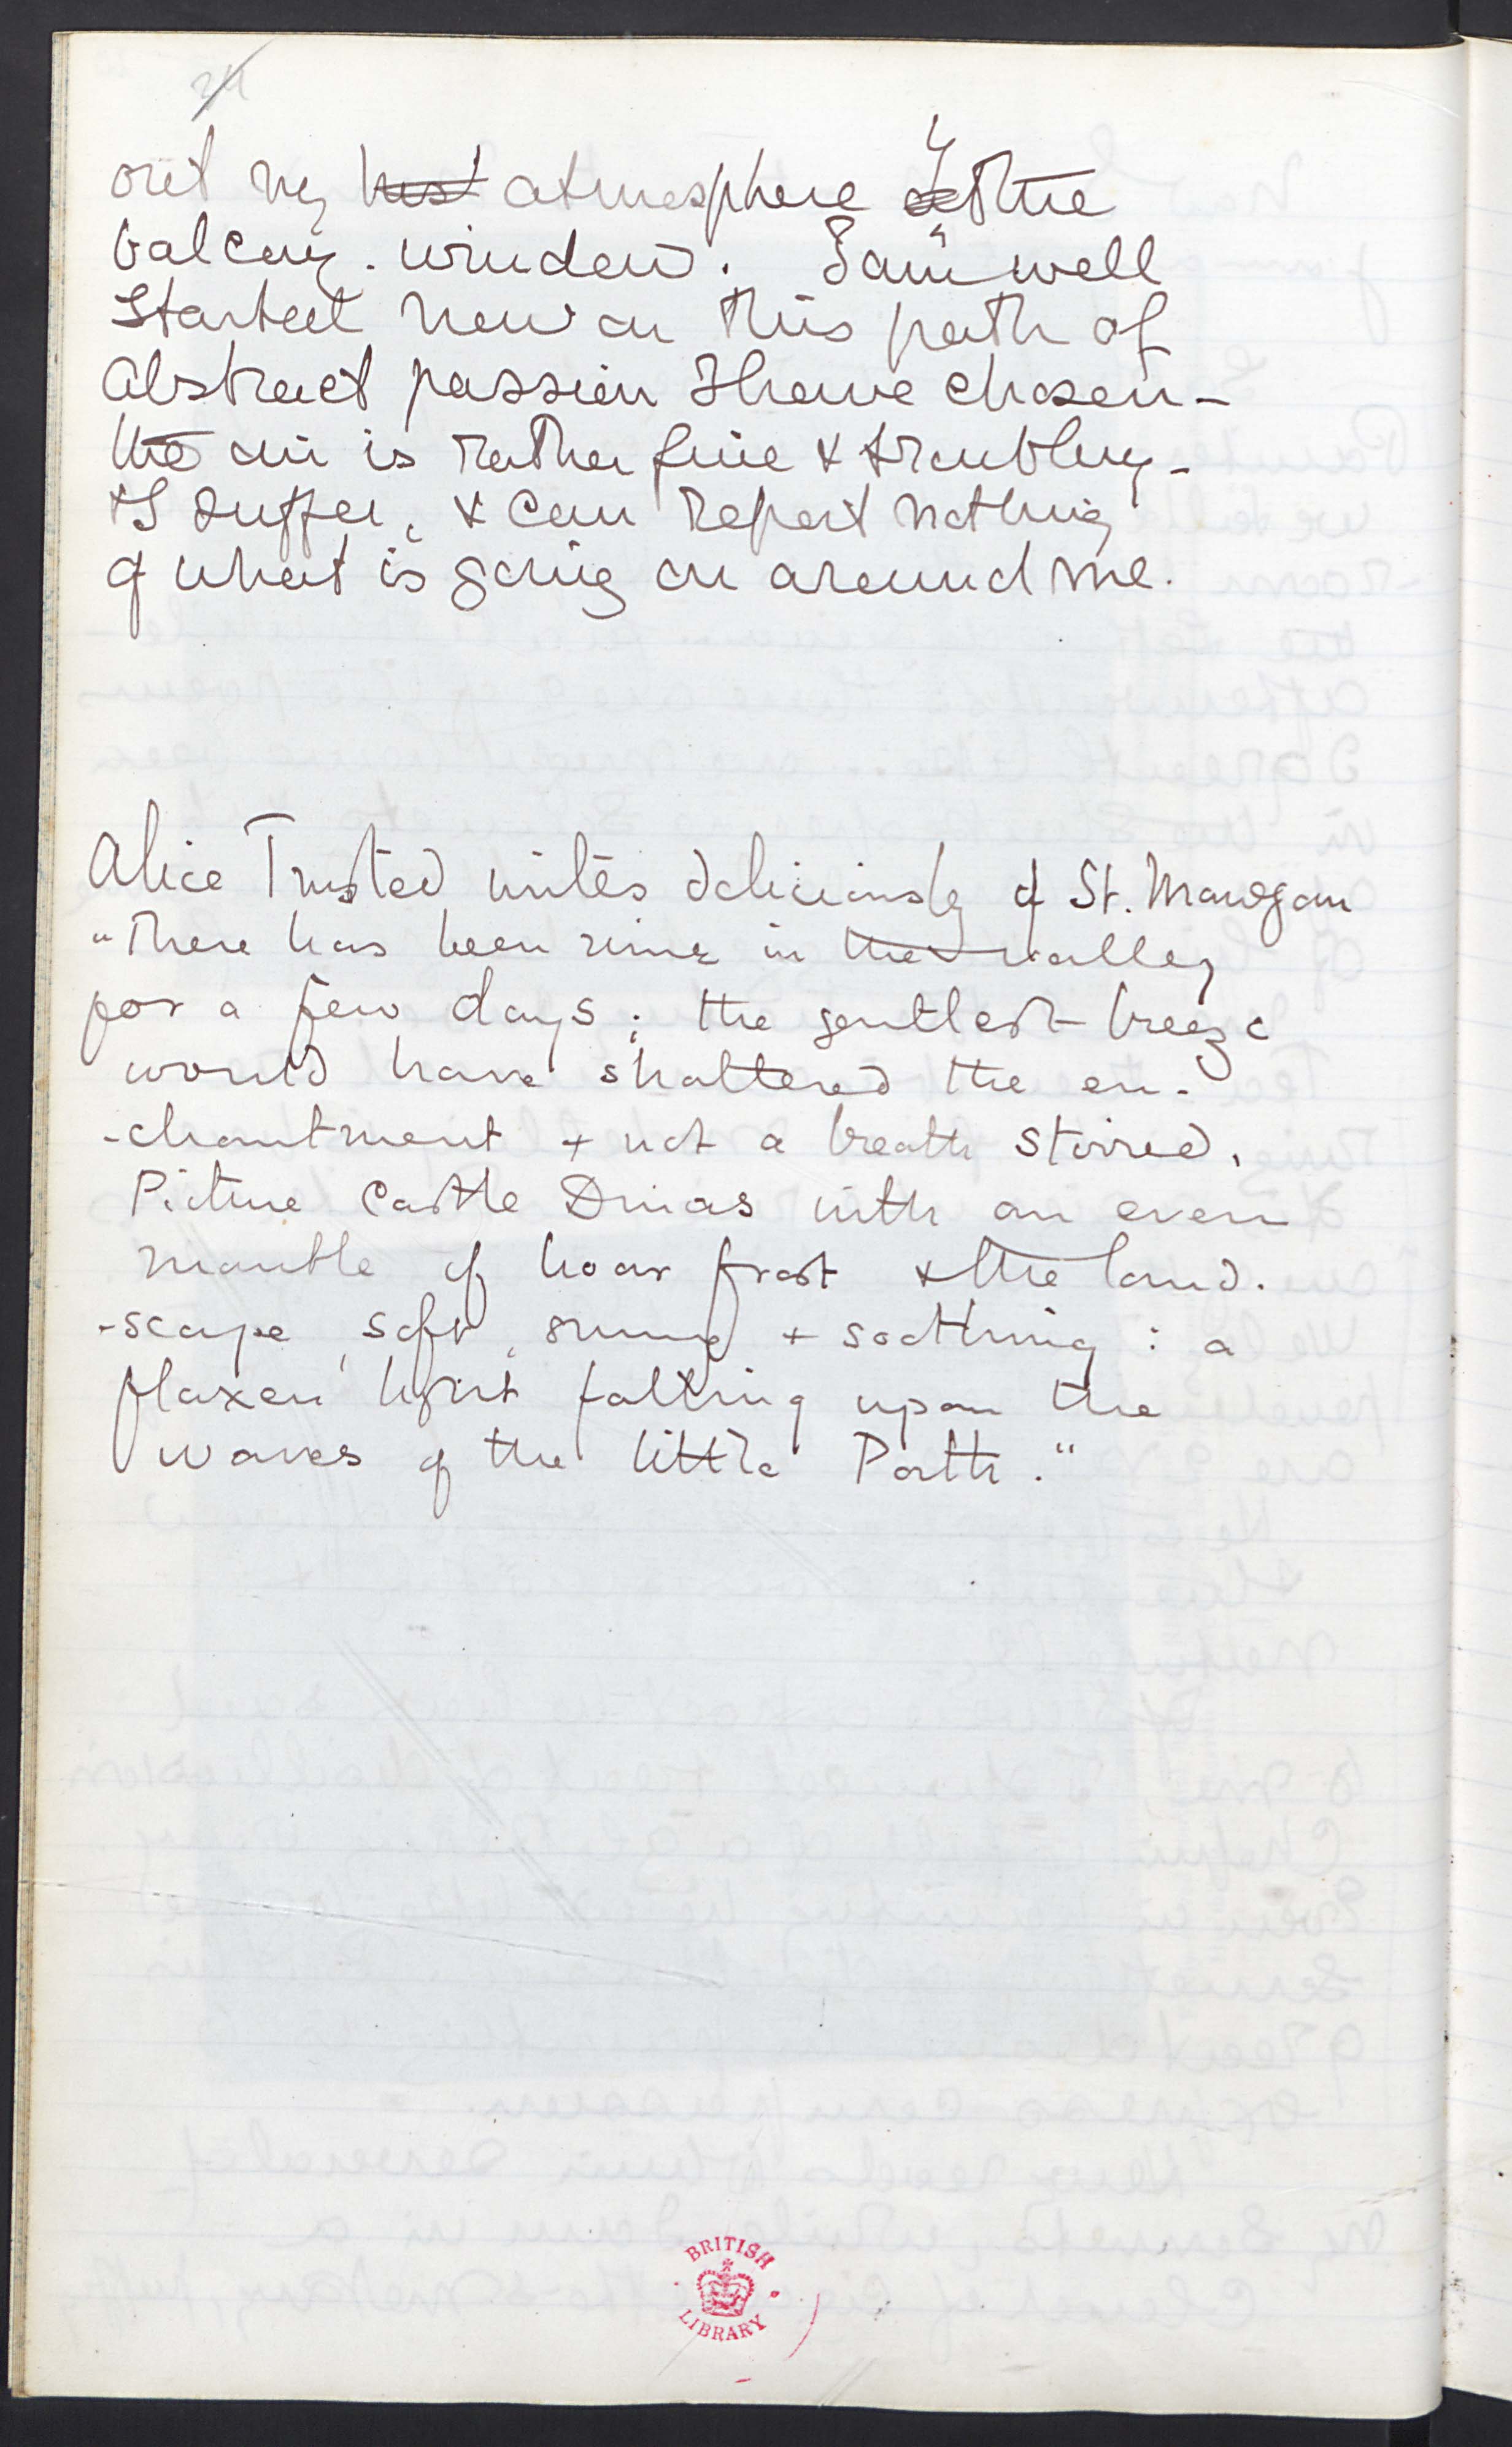 24
out my hist atmosphere at of the
balcony-window. I am well
started now on this path of
abstract passion I have chosen -
the air is rather fine & troubling -
& I suffer, & can report nothing
of what is going on around me.
Alice Trusted writes deliciously of St. Mawgan
"There has been rime in the valley
for a few days; the gentlest breeze
would have shattered the en-
-chantment + not a breath stirred.
Picture Castle Dinas with an even
mantle of hoar frost & the land-
-scape, soft, sunny + soothing: a
flaxen light falling upon the
waves of the little Porth."
BRITISH
LIBRARY